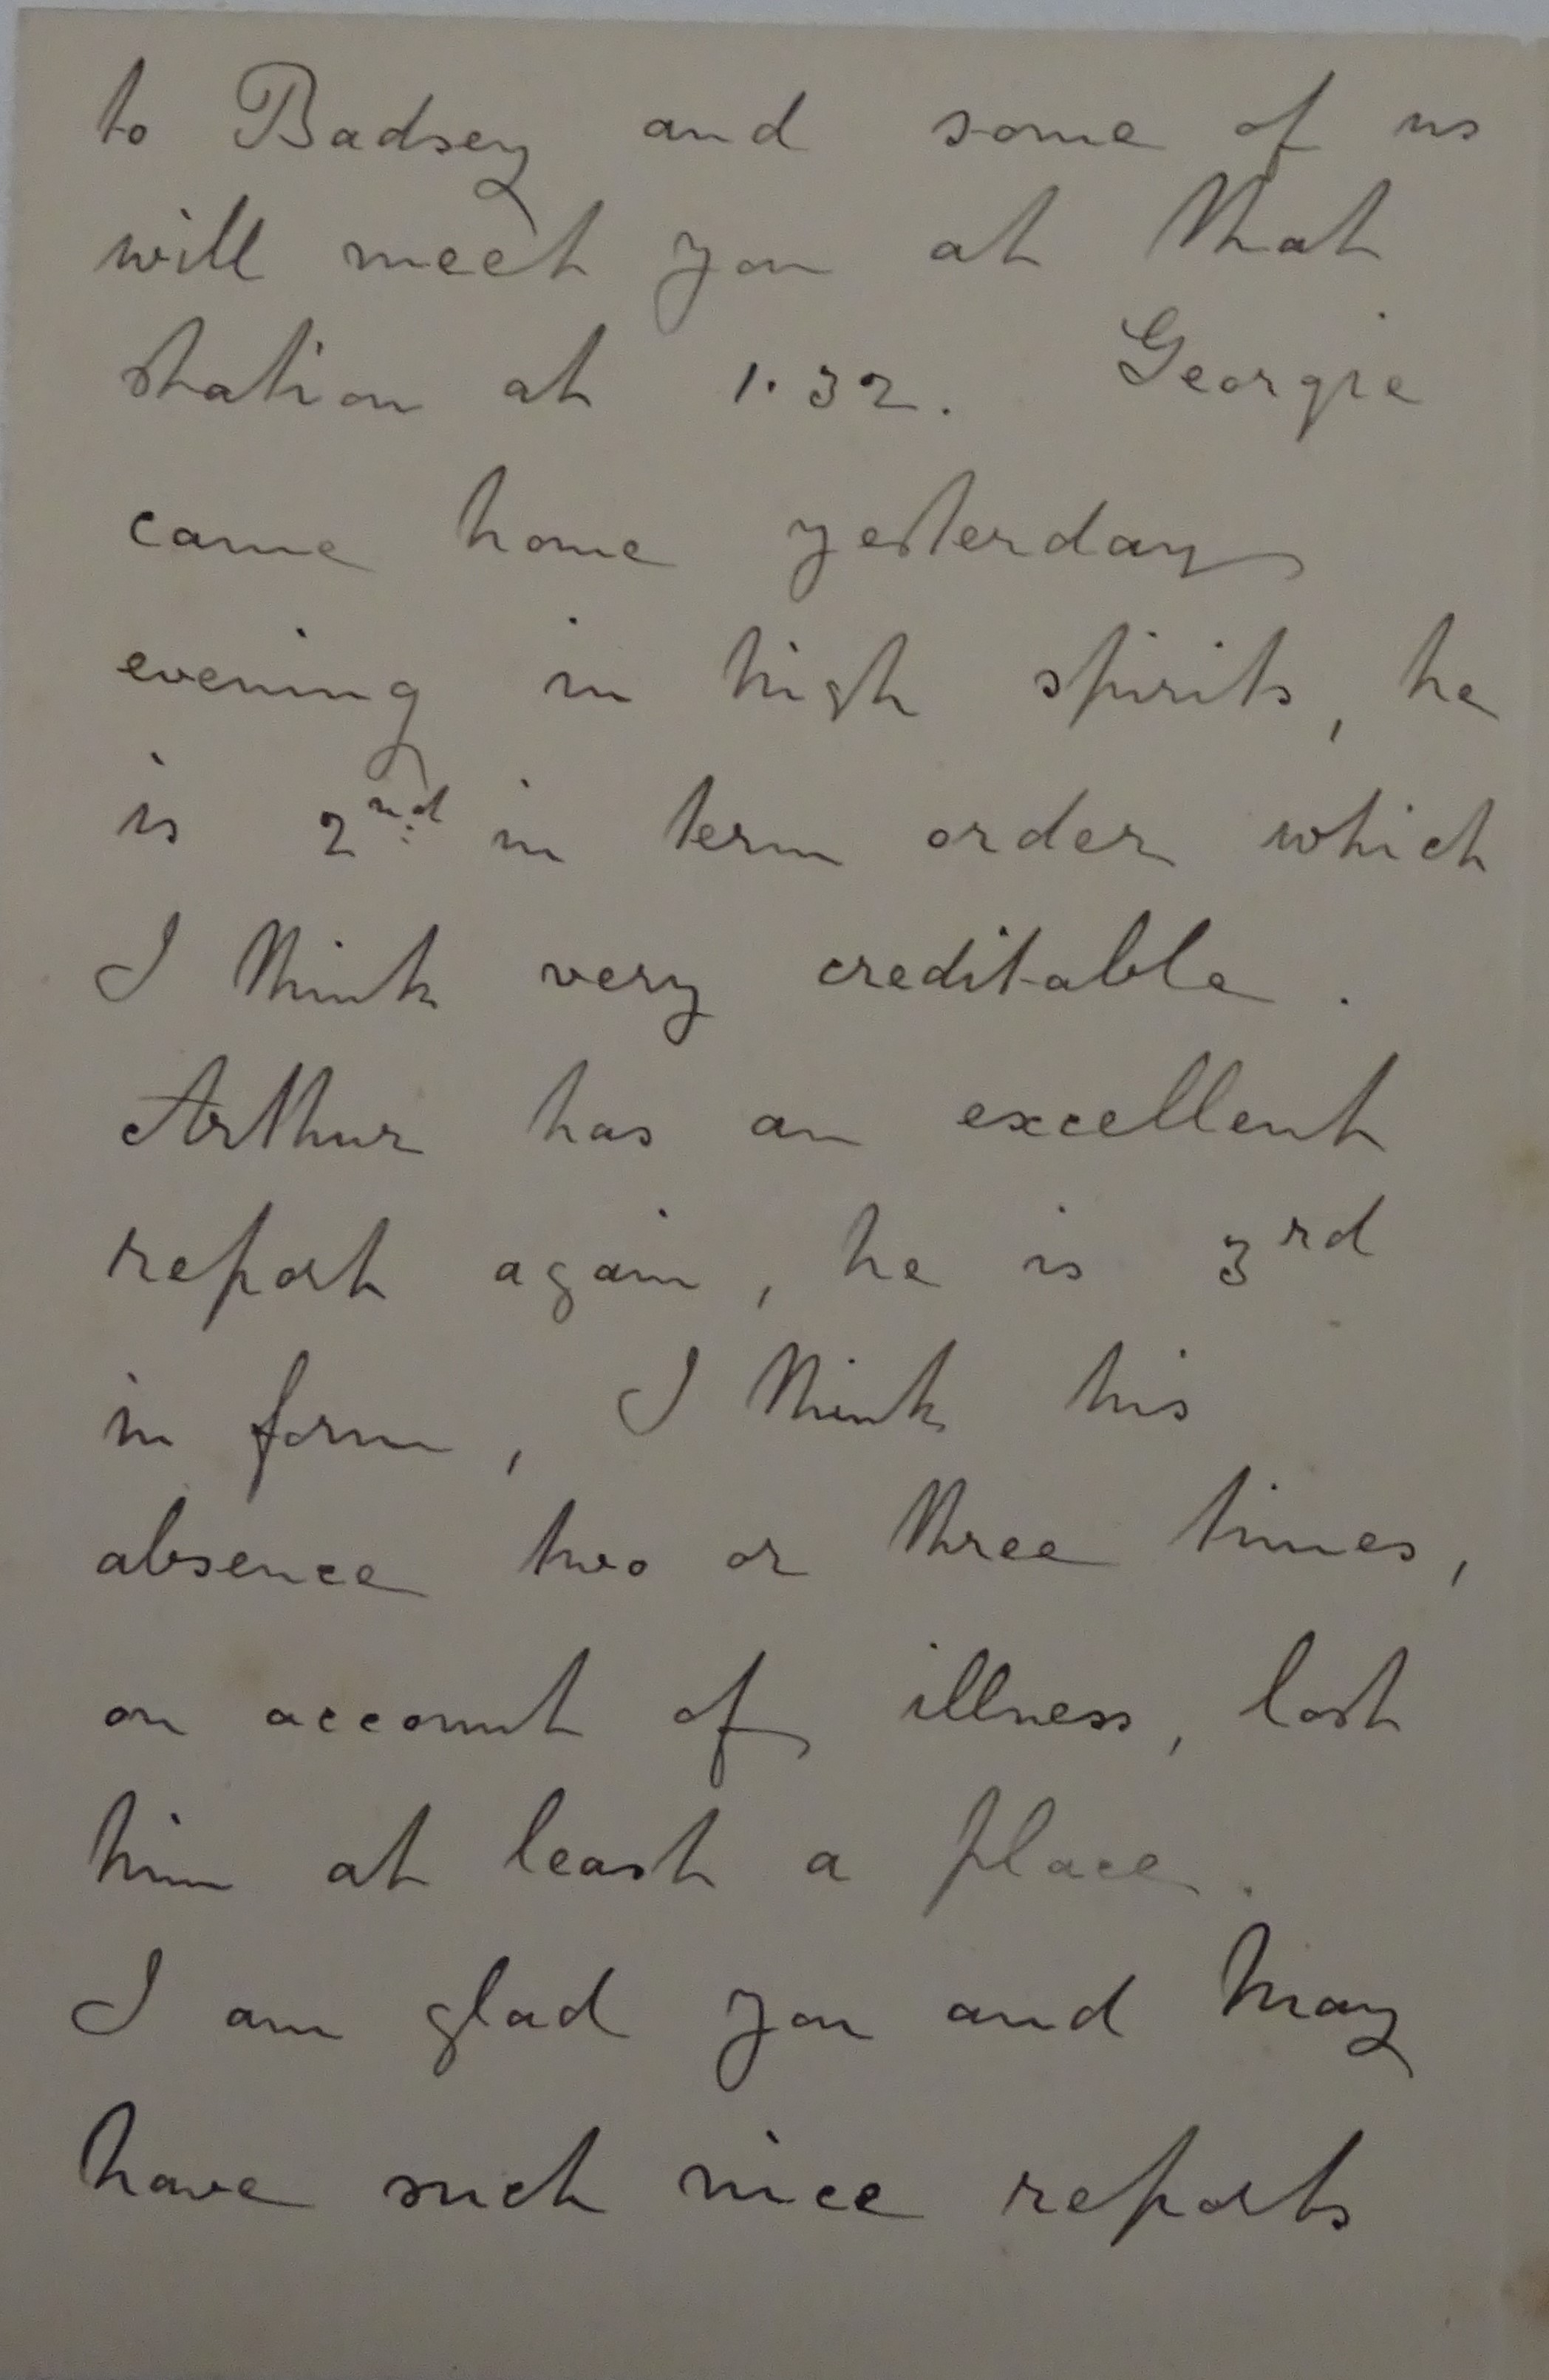 to Badsey and some of us
will meet you at that
station at 1.32. Georgie
came home yesterday
evening in high spirits, he
is 2nd in term order which
I think very creditable.
Arthur has an excellent
report again, he is 3rd
in form, I think his
absence two or three times,
on account of illness, lost
him at least a place.
I am glad you and May
have such nice reports